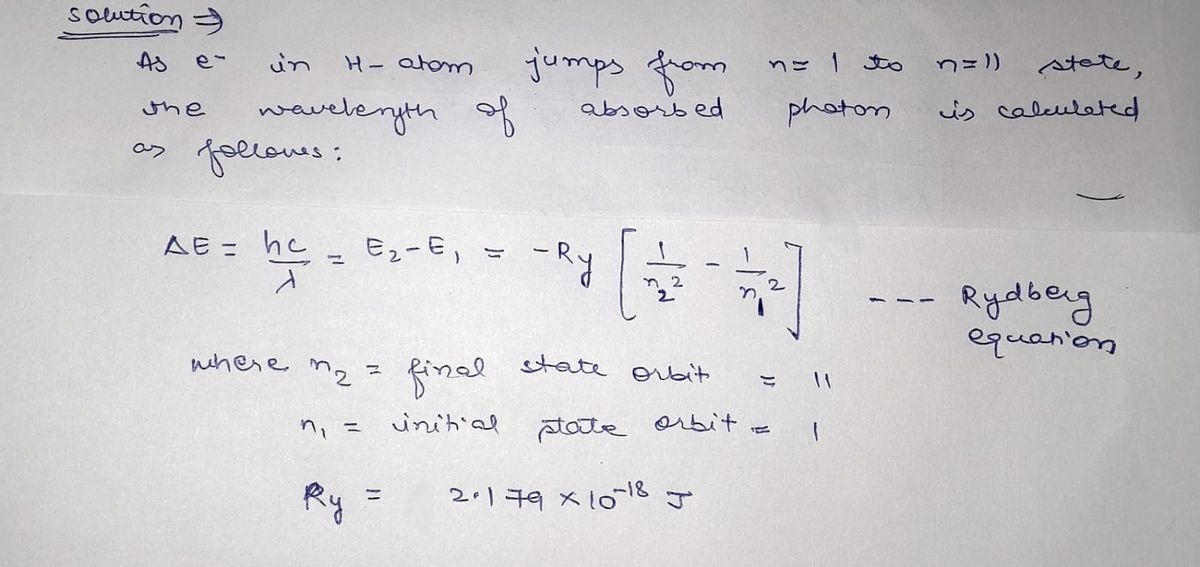 solution ⇒
As e⁻ in H-atom jumps from n=1 to n=11 state,
the wavelength of absorbed photon is calculated
as follows:
ΔE = hc/λ = E₂-E₁ = -Ry [1/n₂² - 1/n₁²] --- Rydberg
equation
where n₂ = final state orbit = 11
n₁ = initial state orbit = 1
Ry = 2.179 × 10⁻¹⁸ J